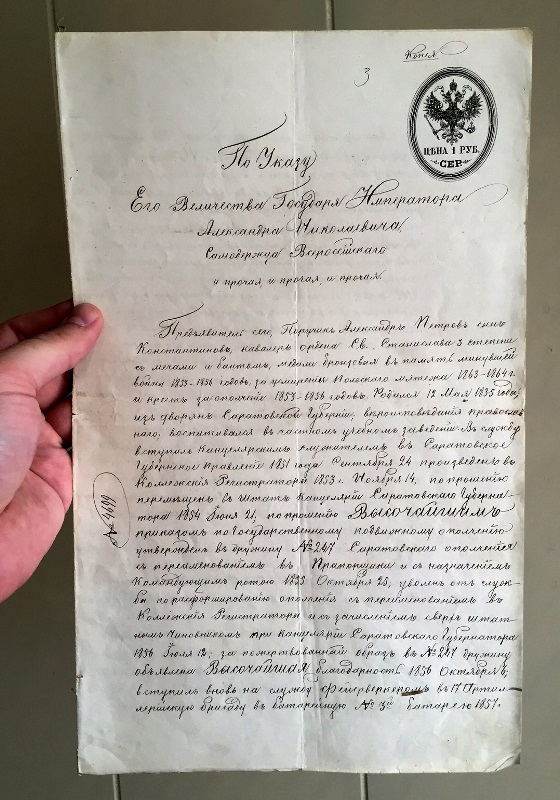 Копія
3
ЦѢНА 1 РУБ.
СЕР.
По Указу
Его Величества Государя Императора
Александра Николаевича
Самодержца Всероссійскаго
и прочая, и прочая, и прочая.
Предъявитель сего, Поручикъ Александръ Петровъ сынъ
Константиновъ, кавалеръ ордена Св. Станислава 3 степени
съ мечами и бантомъ, медали бронзовая въ память минувшей
войны 1853-1856 годовъ, за усмиреніе Польскаго мятежа 1863-1864 г.
и крестъ за ополченіе 1853-1856 годовъ. Родился 12 Мая 1835 года,
изъ дворянъ Саратовской Губерніи, вѣроисповѣданія православ-
наго, воспитывался въ частномъ учебномъ заведеніи. Въ службу
вступилъ канцелярскимъ служителемъ въ Саратовское
Губернское Правленіе 1851 года Сентября 24 произведенъ въ
Коллежскіе Регистраторы 1853 г. Ноября 14, по прошенію
перемѣщенъ въ штатъ канцеляріи Саратовскаго Губерна-
тора 1854 Іюля 21, по прошенію Высочайшимъ
приказомъ по Государственному подвижному ополченію
утвержденъ въ дружину №247 Саратовскаго ополченія
съ переименованіемъ въ Прапорщики и съ назначеніемъ
Командующимъ ротою 1855 Октября 25, уволенъ отъ служ-
бы по расформированію ополченія съ переименованіемъ въ
Коллежскіе Регистраторы и съ зачисленіемъ сверхъ штат-
нымъ Чиновникомъ при канцеляріи Саратовскаго Губернатора
1856 Іюля 12; за пожертвованный образъ въ №247 дружину
объявлена Высочайшая благодарность 1856 Октября 6;
вступилъ вновь на службу Фейерверкеромъ въ 17 Артил-
лерійскую бригаду въ батарейную №3й батарею 1857.
№4699